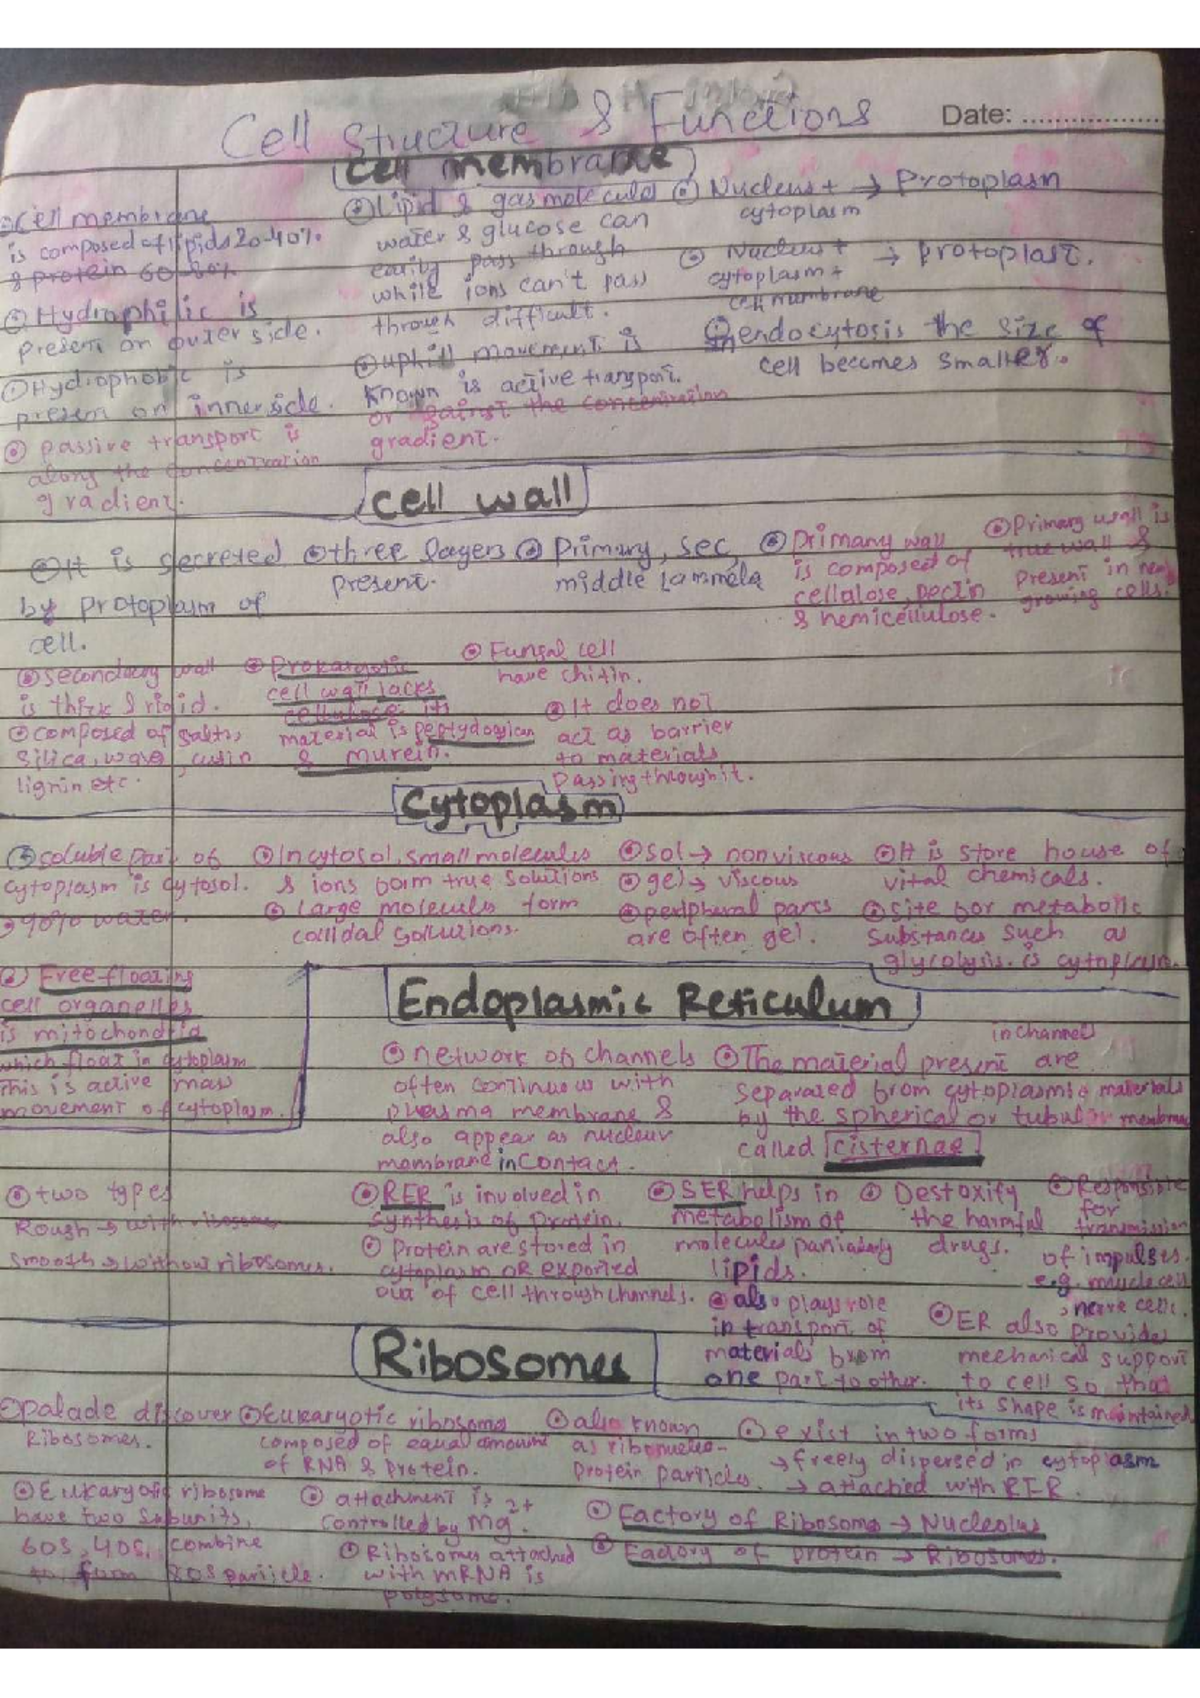 Cell Structure & Functions
Date: ..................
Cell membrane
Cell membrane
is composed of lipids 20-40%
& protein 60-80%
Hydraphilic is
present on outer side.
Hydrophobic is
present on inner side.
passive transport is
along the concentration
gradient.
Lipid & gas molecules
water & glucose can
easily pass through
while ions can't pass
through difficult.
uphill movement is
known is active transport.
or against the concentration
gradient.
Nucleus + → Protoplasm
cytoplasm
Nucleus + → protoplast.
cytoplasm +
cell membrane
endocytosis the size of
cell becomes smaller.
Cell wall
It is secreted
by protoplasm of
cell.
three layers
present.
Primary, sec,
middle lammela
Primary wall
is composed of
cellalose, pectin
& hemicellulose.
Primary wall is
true wall &
present in new
growing cells.
secondary wall
is thick & rigid.
composed of salts,
silica, wax, cutin
lignin etc.
Prokaryotic
cell wall lacks
cellulose its
material is peptydogycan
& murein.
Fungal cell
have chitin.
It does not
act as barrier
to materials
passing through it.
Cytoplasm
soluble part of
cytoplasm is cytosol.
90% water.
In cytosol, small molecules
& ions form true solutions
Large molecules form
collidal solutions.
sol → non viscous
gel → viscous
peripheral parts
are often gel.
It is store house of
vital chemicals.
site for metabolic
substances such as
glycolysis is cytoplasm.
Free floating
cell organelles
is mitochondria
which float in cytoplasm
This is active mass
movement of cytoplasm.
Endoplasmic Reticulum
network of channels
often continuous with
plasma membrane &
also appear as nuclear
membrane in contact.
in channels
The material present are
separated from cytoplasmic materials
by the spherical or tubular membrane
called cisternae
two types
Rough → with ribosome
smooth → without ribosomes.
RER is involved in
synthesis of protein.
Protein are stored in
cytoplasm OR exported
out of cell through channels.
SER helps in
metabolism of
molecules particularly
lipids.
also plays role
in transport of
materials from
one part to other.
Destoxify
the harmful
drugs.
Responsible
for
transmission
of impulses.
e.g. muscle cell
, nerve cells.
ER also provides
mechanical support
to cell so that
its shape is maintained
Ribosomes
palade discover
Ribosomes.
Eukaryotic ribosome
composed of equal amount
of RNA & protein.
also known
as ribonucleo-
protein particles.
exist in two forms
→ freely dispersed in cytoplasm
→ attached with RER.
Eukaryotic ribosome
have two subunits,
60S, 40S, combine
to form 80S particle.
attachment is
controlled by Mg2+.
Ribosomes attached
with mRNA is
polysome.
Factory of Ribosome → Nucleolus
Factory of protein → Ribosomes.